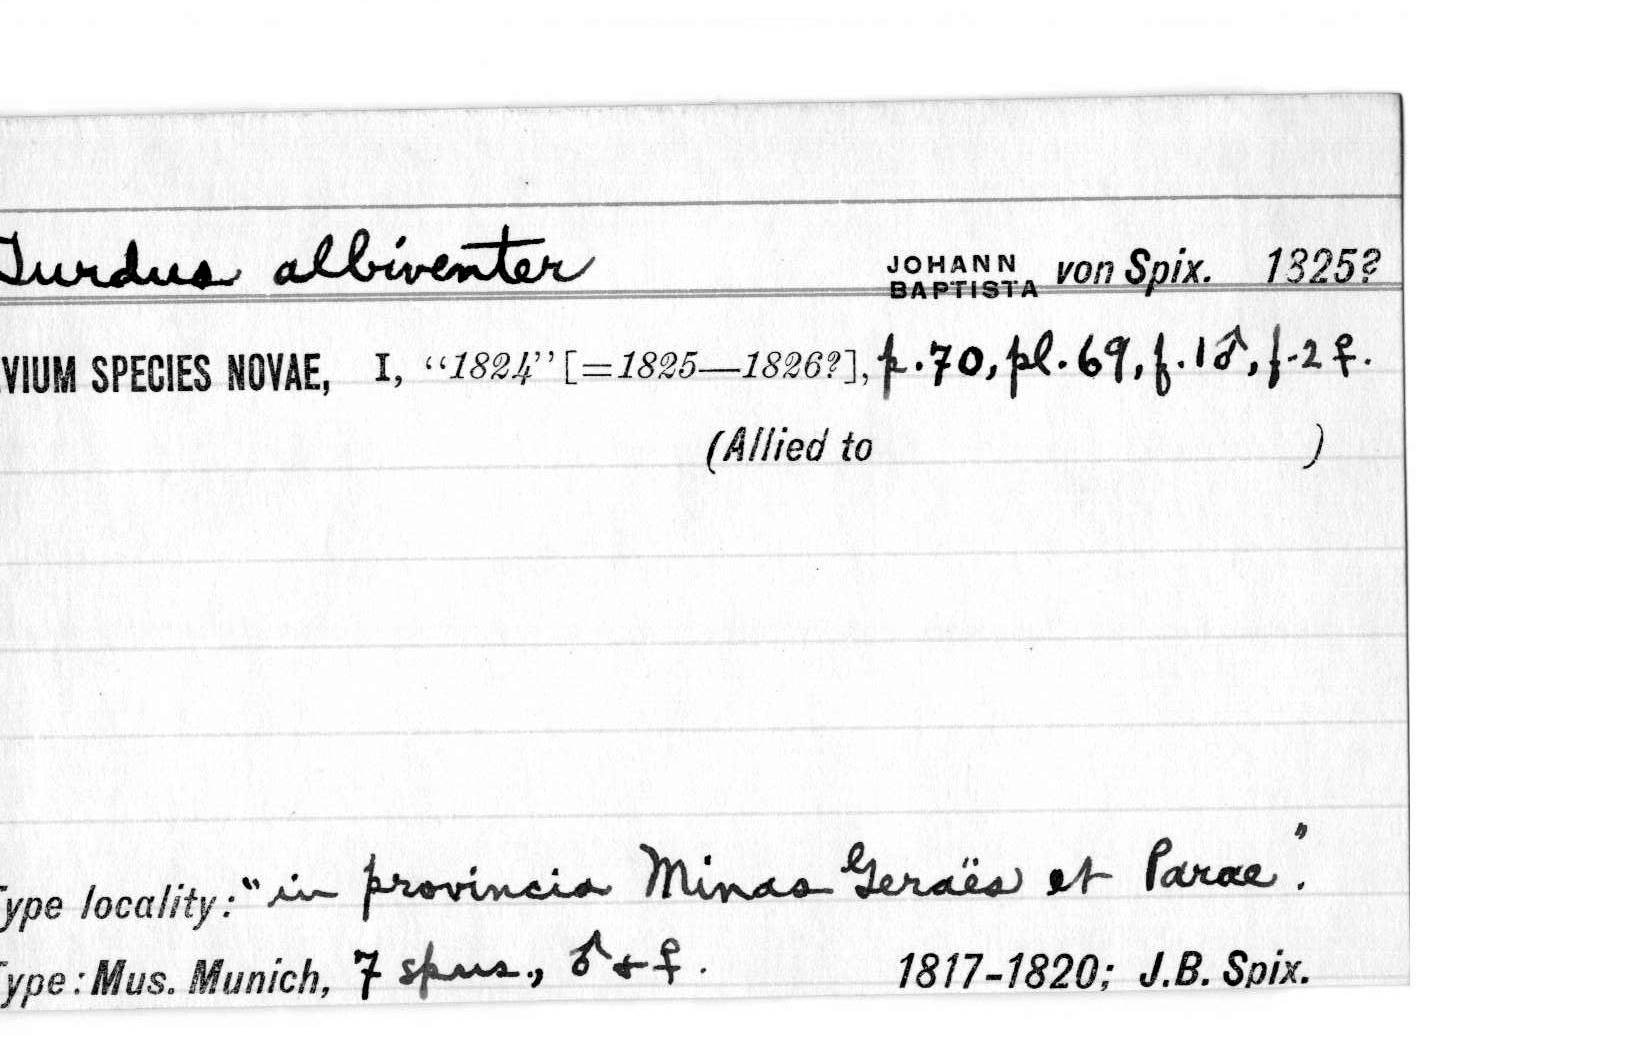 Turdus albiventer JOHANN BAPTISTA von Spix. 1825?
VIUM SPECIES NOVAE, I, “1824” [=1825—1826?], p. 70, pl. 69, f. 1 ♂, f. 2 ♀.
(Allied to )
ype locality: “in provincia Minas Geraës et Parae”.
ype: Mus. Munich, 7 spms., ♂ + ♀. 1817-1820; J.B. Spix.